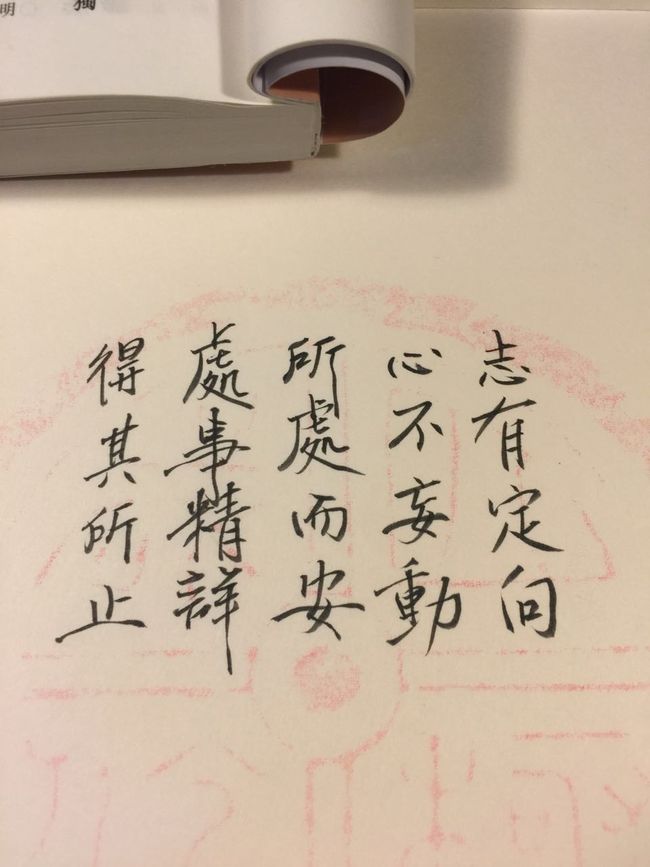 志有定向
心不妄動
所處而安
處事精詳
得其所止
獨
明